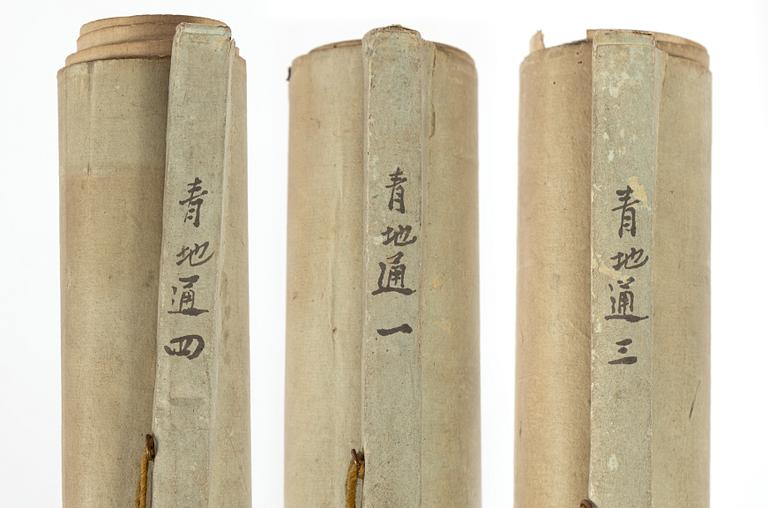 青地通四
青地通一
青地通三